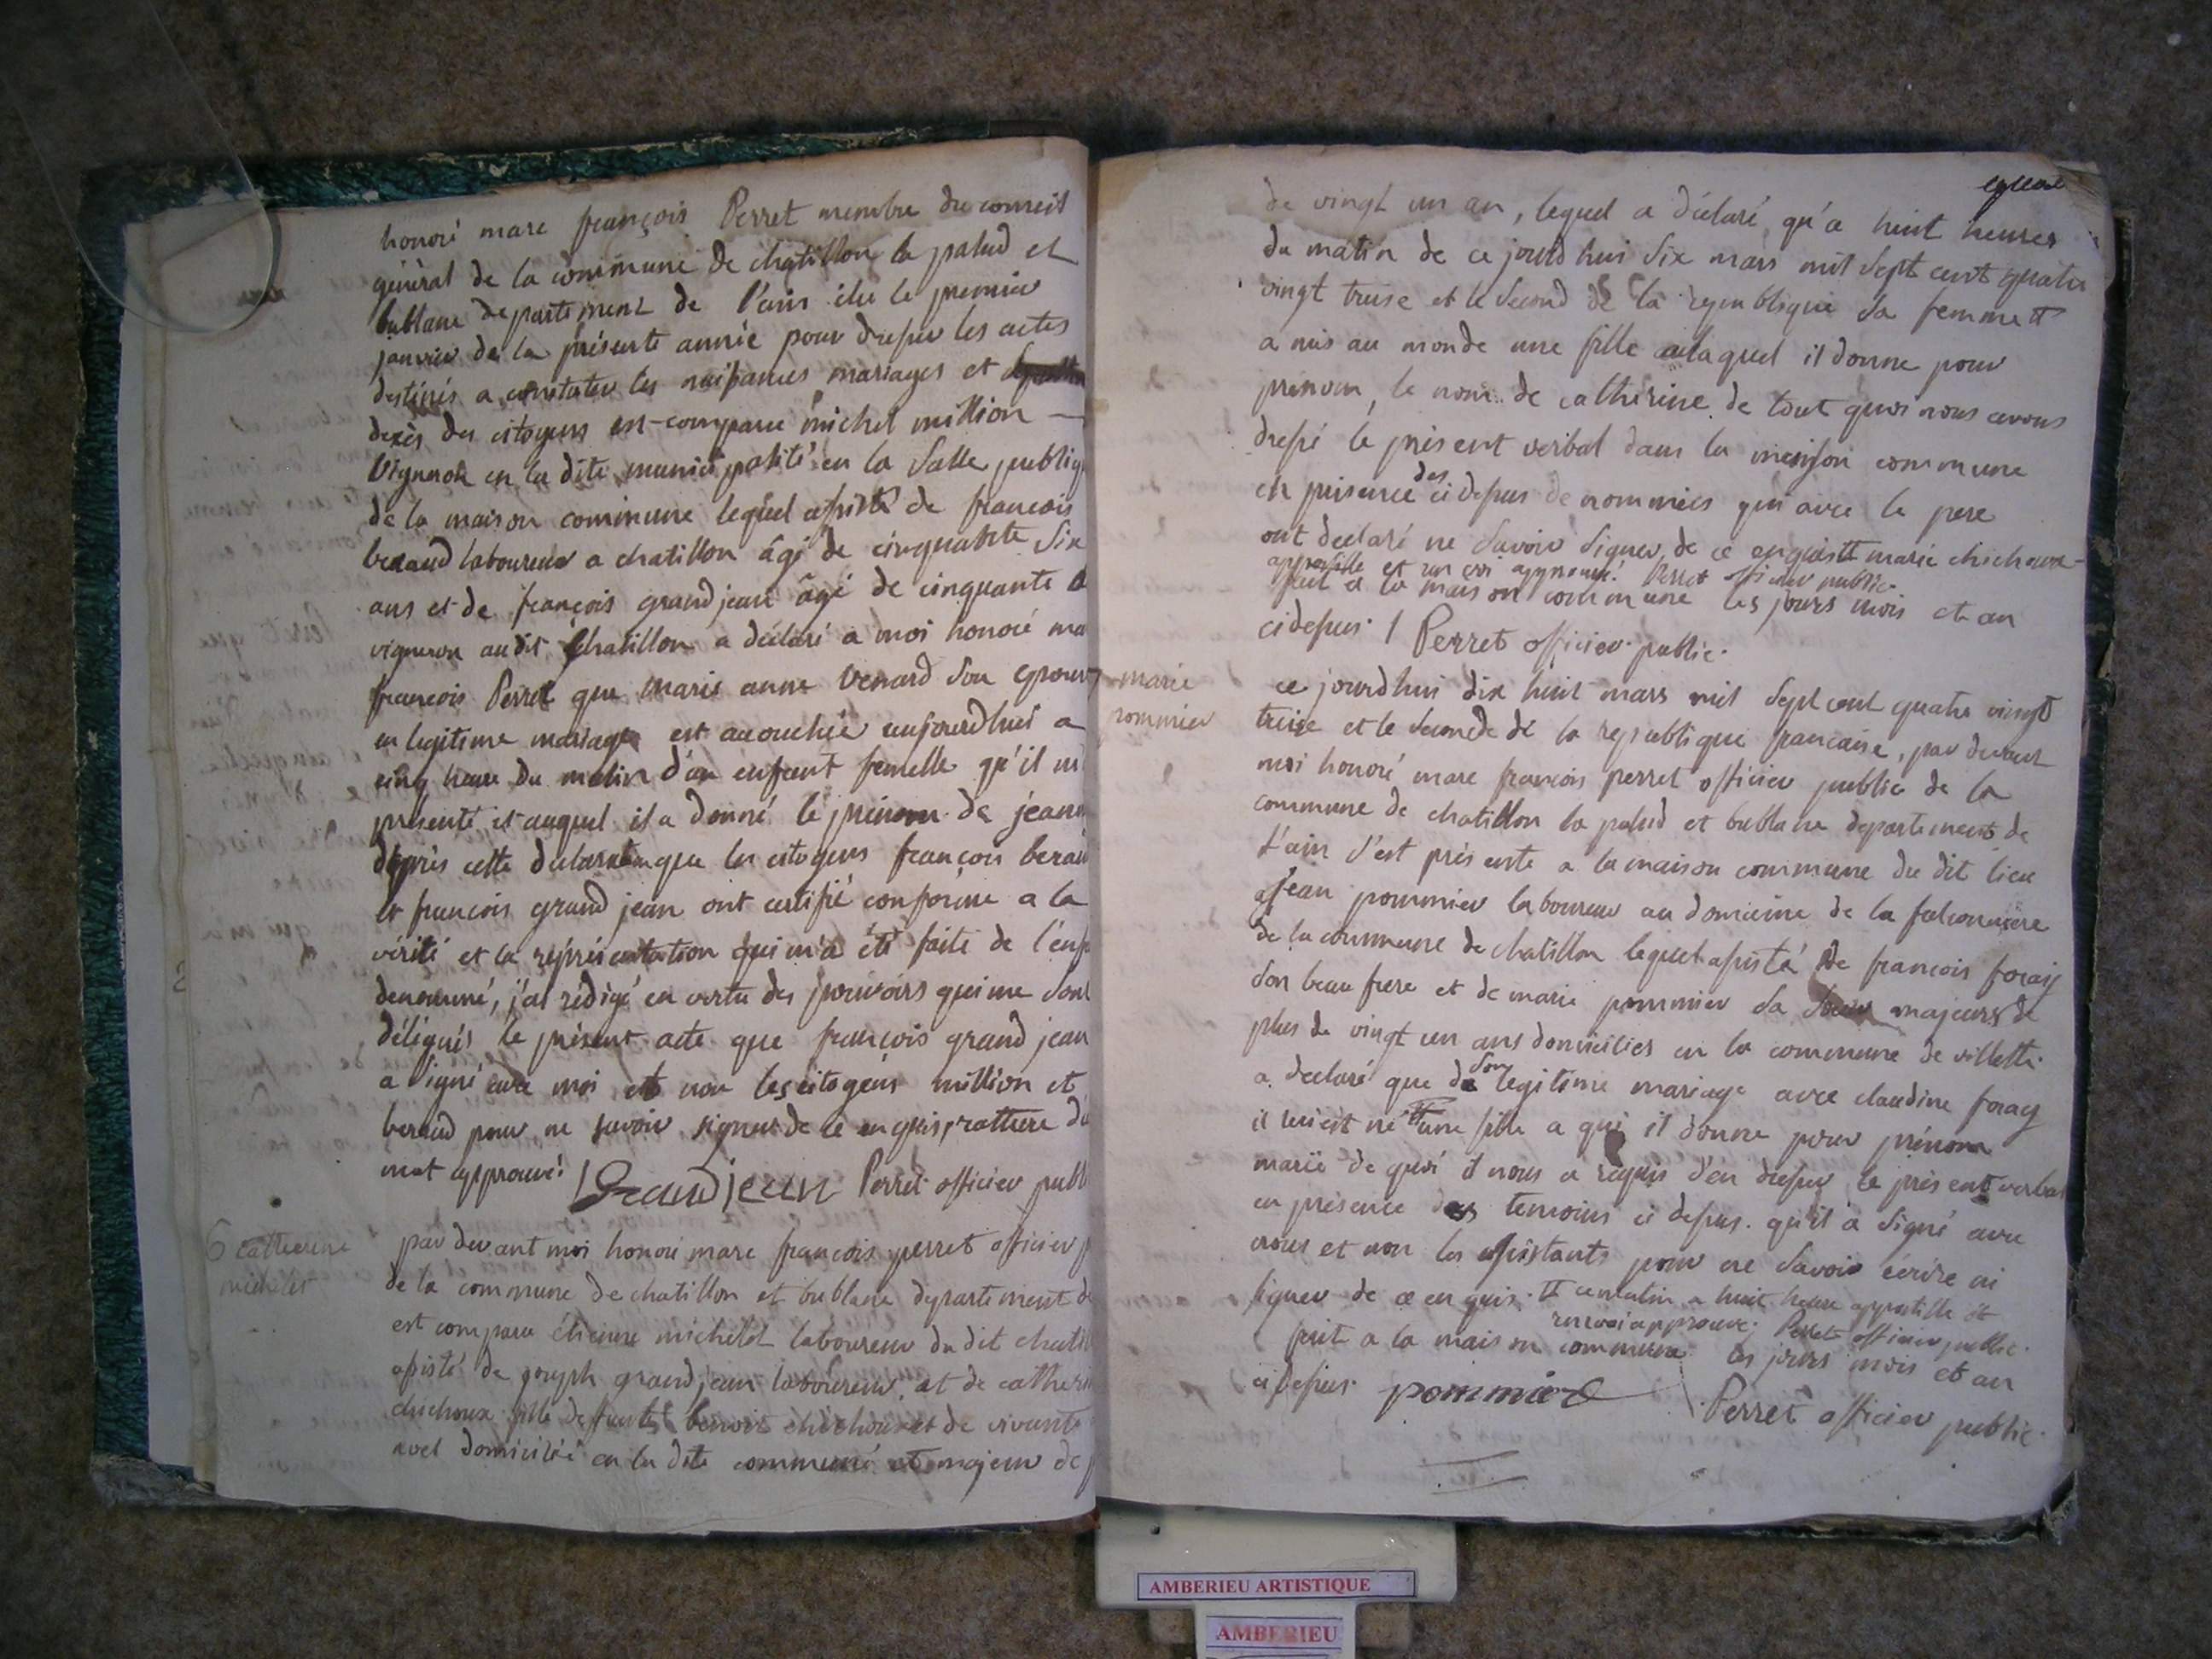 honoré marc françois Perret membre du conseil
général de la commune de chatillon la palud et
bublane departement de l'ain élu le premier
janvier de la présente année pour dresser les actes
destinés a constater les naissances mariages et
decès des citoyens est-comparu michel million
vigneron en la dite municipalité en la salle publiq
de la maison commune lequel assisté de francois
beraud laboureur a chatillon âgé de cinquante six
ans et de françois grandjean âgé de cinquante
vigneron audit chatillon a déclaré a moi honoré ma
francois Perret que marie anne venard son epouse
en legitime mariage est accouchée aujourdhui a
cinq heure du matin d'un enfant femelle qu'il m
présenté et auquel il a donné le prénom de jean
daprès cette declaration que les citoyens françois berau
et francois grand jean ont certifié conforme a la
vérité et la représentation qui m'a été faite de l'enf
denommé, j'ai rédigé en vertu des pouvoirs qui me sont
délégués le présent acte que françois grand jean
a signé avec moi et non les citoyens million et
beraud pour ne savoir signer de ce enquis, rature d'u
mot approuvé. Grandjean Perret officier publ
6 catherine
michelet
par devant moi honoré marc françois perret officier p
de la commune de chatillon et bublane departement de
est comparu étienne michelet laboureur du dit chatil
assisté de joseph grandjean laboureur, et de catheri
chichoux fille de benoit chichoux et de vivante
domicilié en la dite commune et majeur de p
de vingt un an, lequel a déclaré, qu'a huit heures
du matin de ce jourdhui six mars mil sept cent quatre
vingt treise et le second de la republique sa femme
a mis au monde une fille alaquel il donne pour
prénom, le nom de catherine de tout quoi nous avons
dressé le présent verbal dans la maison commune
en presence des ci dessus denommés qui avec le pere
ont declaré ne savoir signer, de ce enquis marie chichoux
appostille et un approuvé. Perret officier public.
fait a la maison commune les jours mois et an
cidessus. Perret officier public.
marie
pommier
ce jourdhui dix huit mars mil sept cent quatre vingt
treise et le seconde de la republique francaise, par devant
moi honoré marc françois perret officier public de la
commune de chatillon la palud et bublane departement de
l'ain s'est présenté a la maison commune du dit lieu
jean pommier laboureur au domaine de la falconnière
de la commune de chatillon lequel assisté de francois foray
son beau frere et de marie pommier sa soeur majeurs de
plus de vingt un ans domiciliés en la commune de villette
a declaré que de son legitime mariage avec claudine foray
il lui est né une fille a qui il donne pour prénom
marie de quoi il nous a requis d'en dresser le présent verbal
en présence des temoins ci dessus. qu'il a signé avec
nous et non les assistants pour ne savoir écrire ni
signer de ce enquis. ce matin a huit heure appostille et
renvoi approuvé. Perret officier public.
fait a la maison commune les jours mois et an
ci dessus. pommier
Perret officier public.
AMBERIEU ARTISTIQUE
AMBERIEU